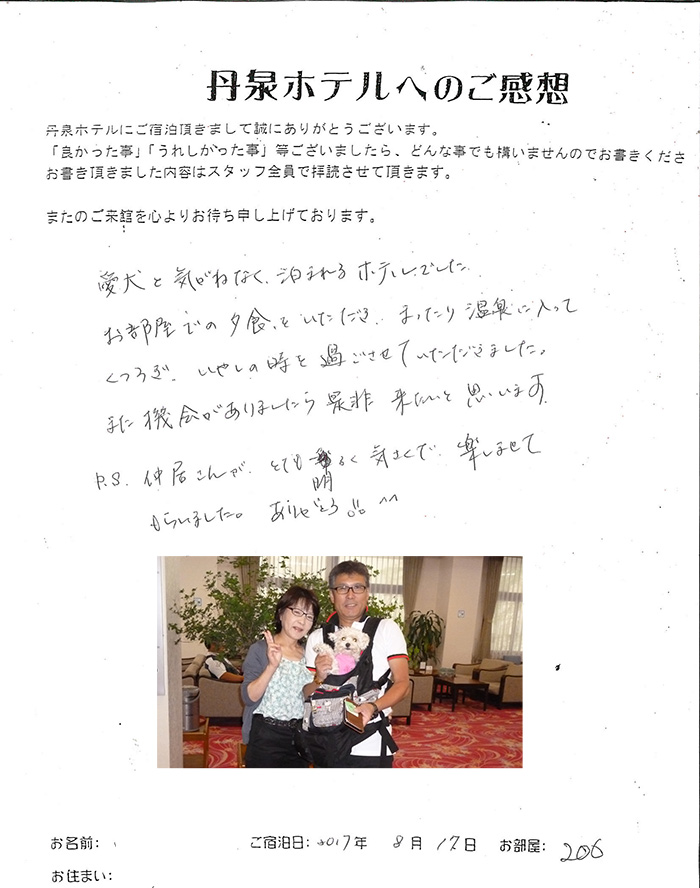 丹泉ホテルへのご感想
丹泉ホテルにご宿泊頂きまして誠にありがとうございます。
「良かった事」「うれしかった事」等ございましたら、どんな事でも構いませんのでお書きくださ
お書き頂きました内容はスタッフ全員で拝読させて頂きます。
またのご来館を心よりお待ち申し上げております。
愛犬と気がねなく、泊まれるホテルでした
お部屋での夕食をいただき、まったり温泉に入って
くつろぎ、いやしの時を過ごさせていただきました。
また機会がありましたら是非来たいと思います
P.S. 仲居さんが、とても明るく気さくで、楽しませて
もらいました。ありがとう!! ^^
お名前:
ご宿泊日: 2017年 8月 17日 お部屋: 206
お住まい: